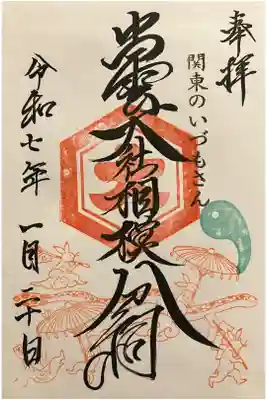 奉拝
関東のいづもさん
出雲大社相模分祠
令和七年 一月二十日